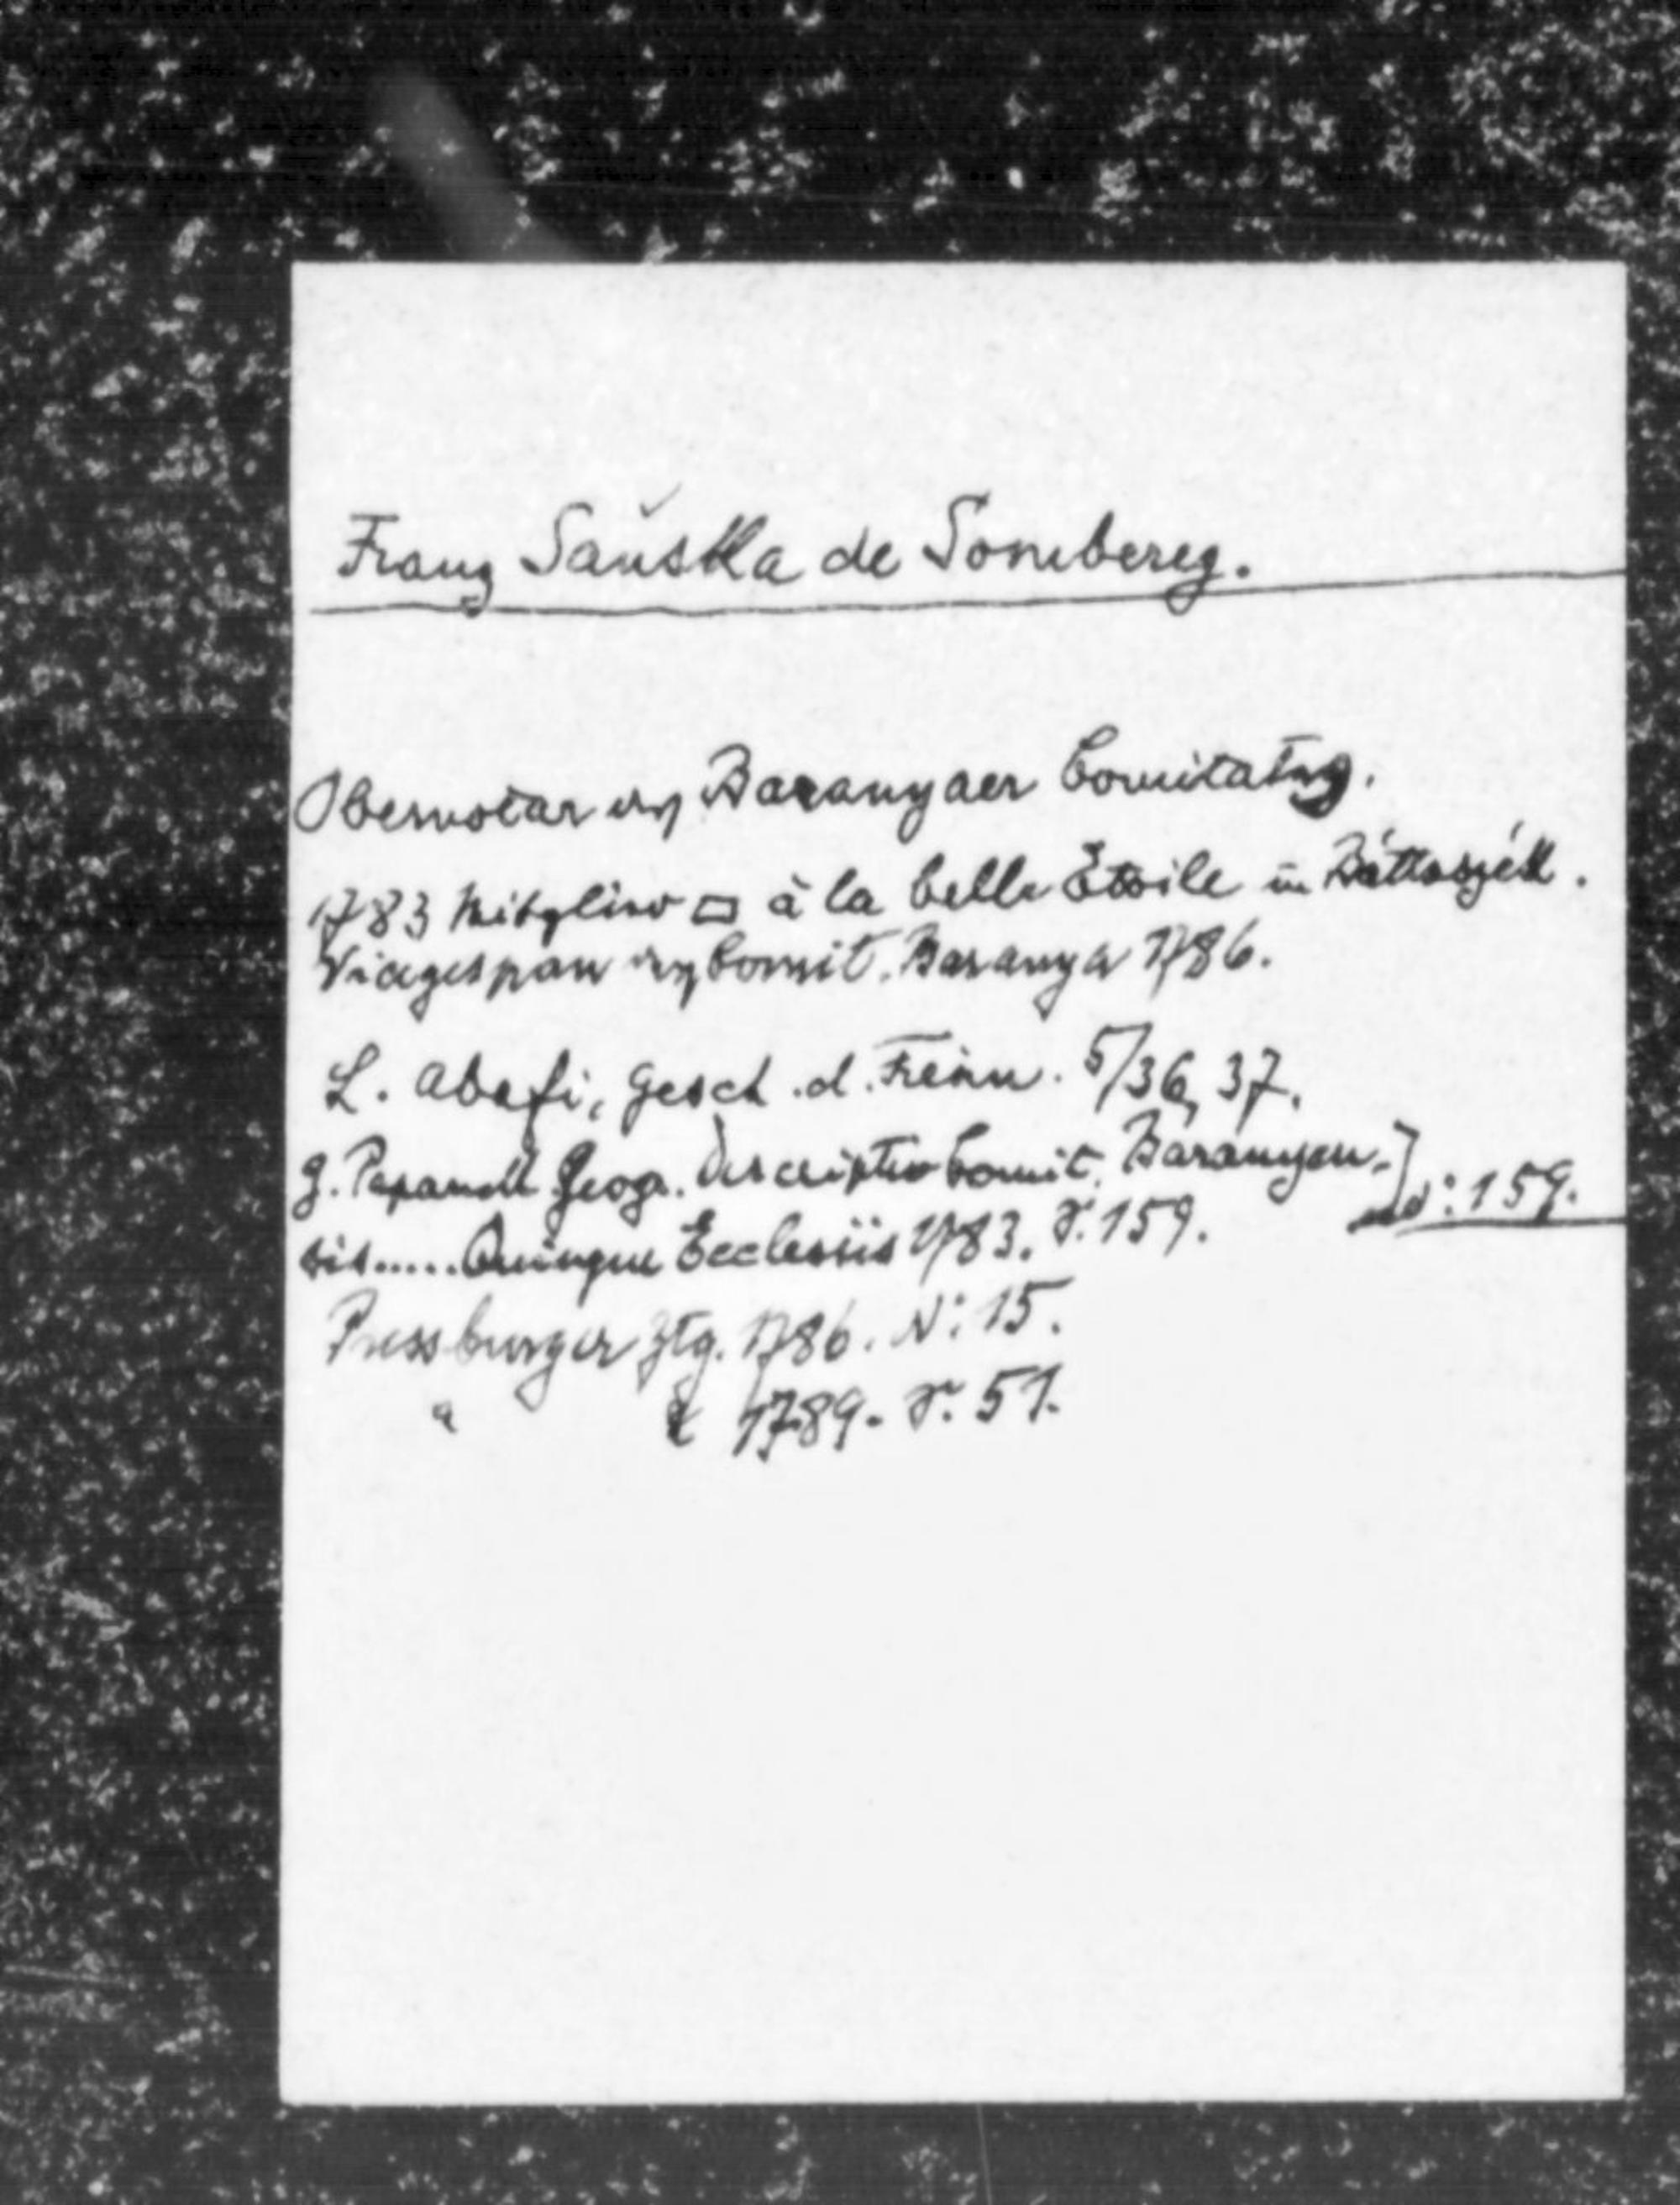 Franz Sauska de Sombereg.
Obernotar des Baranyaer Comitates.
1783 Mitglied □ à la belle Etoile in Báttaszék.
Vicegespan des Comit. Baranya 1786.
L. Abafi, Gesch. d. Freim. 5/36, 37.
J. Geogr. Descriptio Comit. Baranyen-] N: 159.
sis..... Quinque Ecclesiis 1783. S. 159.
Pressburger Ztg. 1786. N: 15.
" " 1789. S. 51.